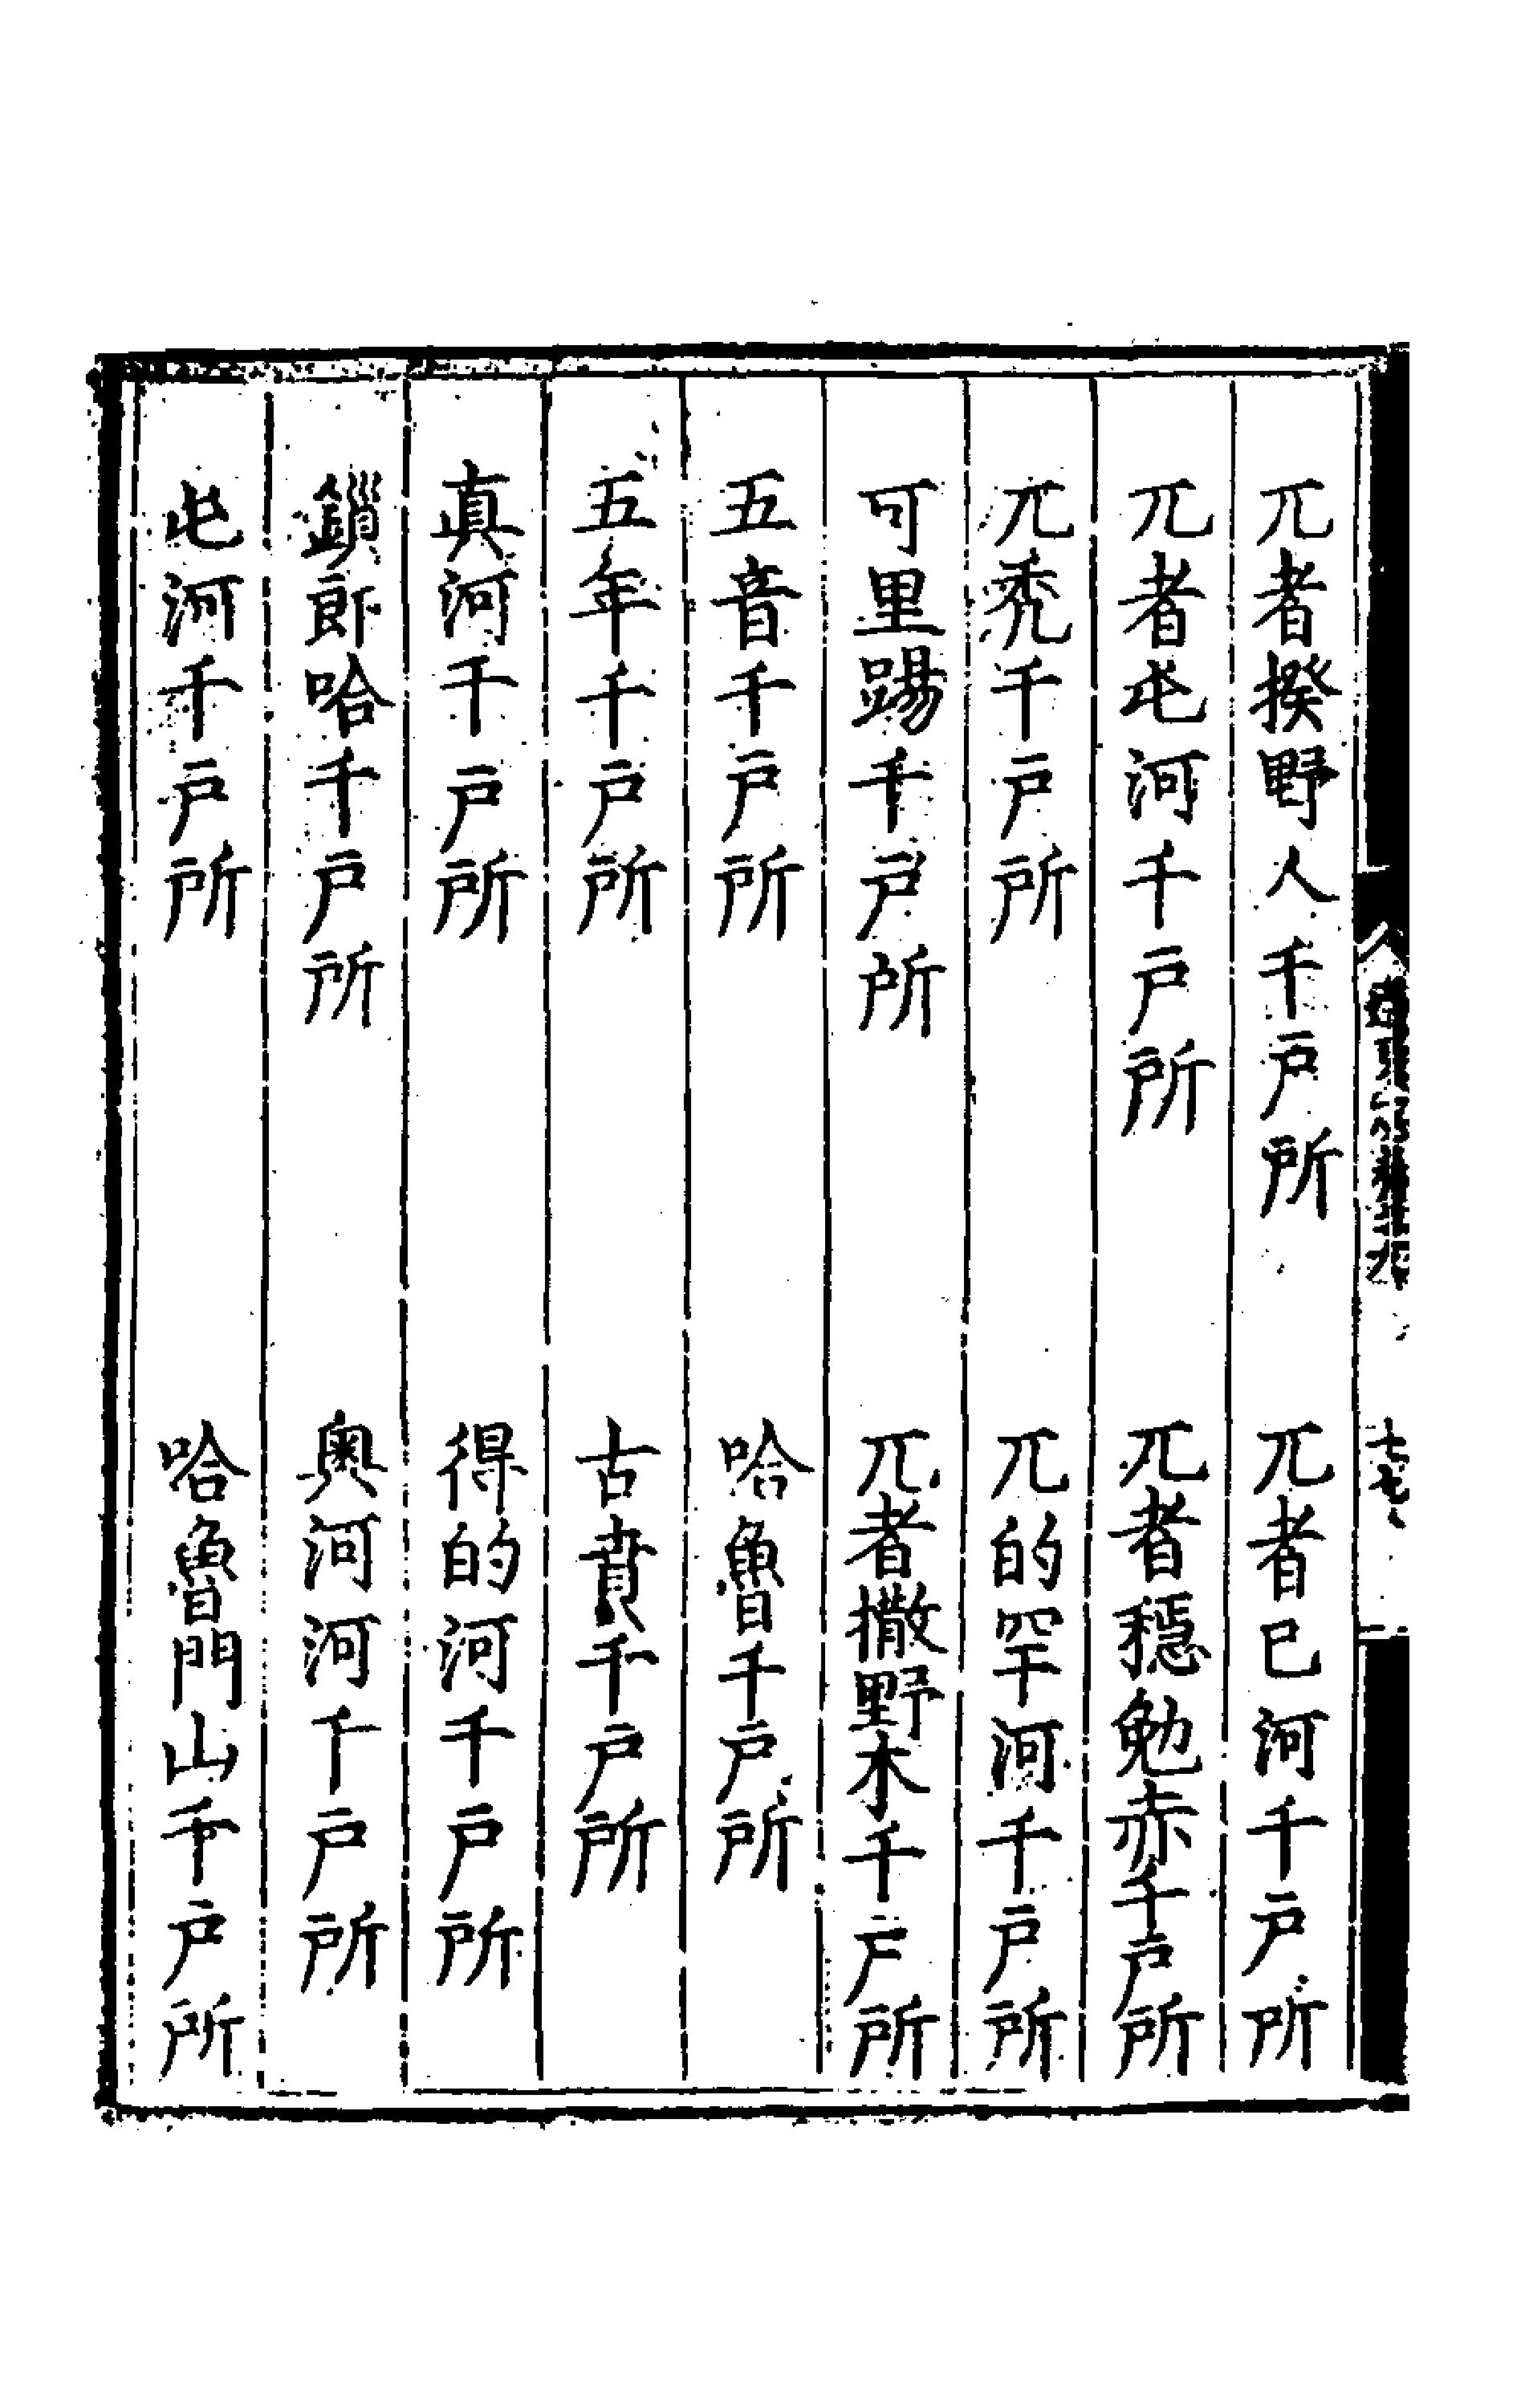 兀者揆野人千戶所　兀者已河千戶所
兀者屯河千戶所　兀者穩勉赤千戶所
兀禿千戶所　兀的罕河千戶所
可里踢千戶所　兀者撒野木千戶所
五音千戶所　哈魯千戶所
五年千戶所　古賁千戶所
真河千戶所　得的河千戶所
鎖郎哈千戶所　奧河河千戶所
屯河千戶所　哈魯門山千戶所